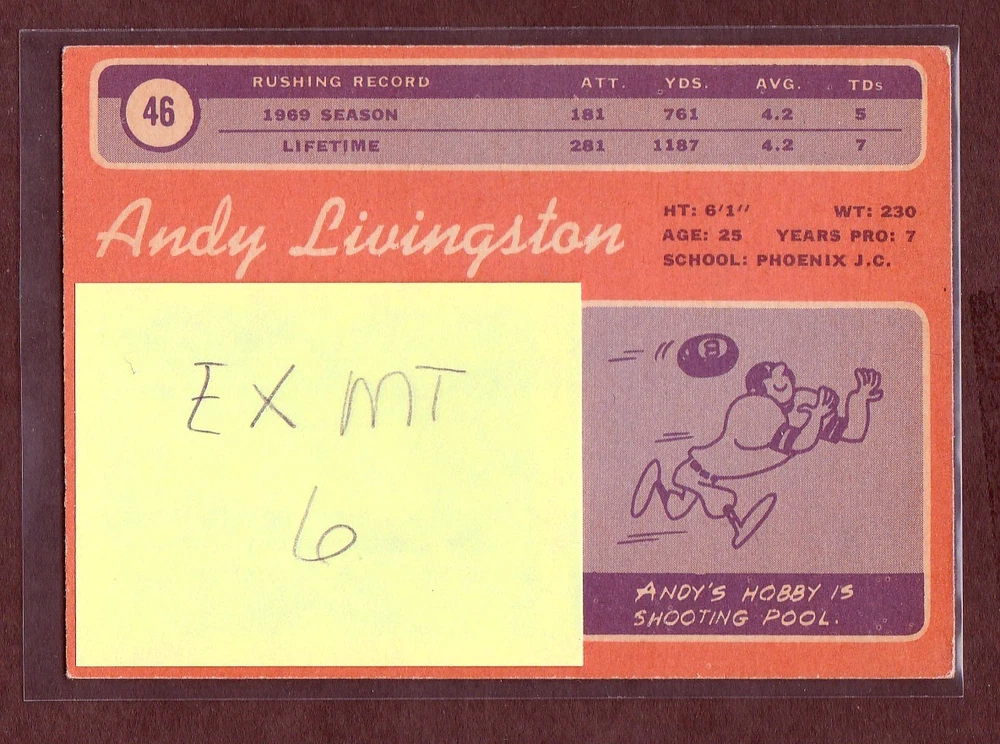 46
RUSHING RECORD ATT. YDS. AVG. TDs
1969 SEASON 181 761 4.2 5
LIFETIME 281 1187 4.2 7
Andy Livingston
HT: 6'1" WT: 230
AGE: 25 YEARS PRO: 7
SCHOOL: PHOENIX J.C.
EX MT
6
8
ANDY'S HOBBY IS
SHOOTING POOL.